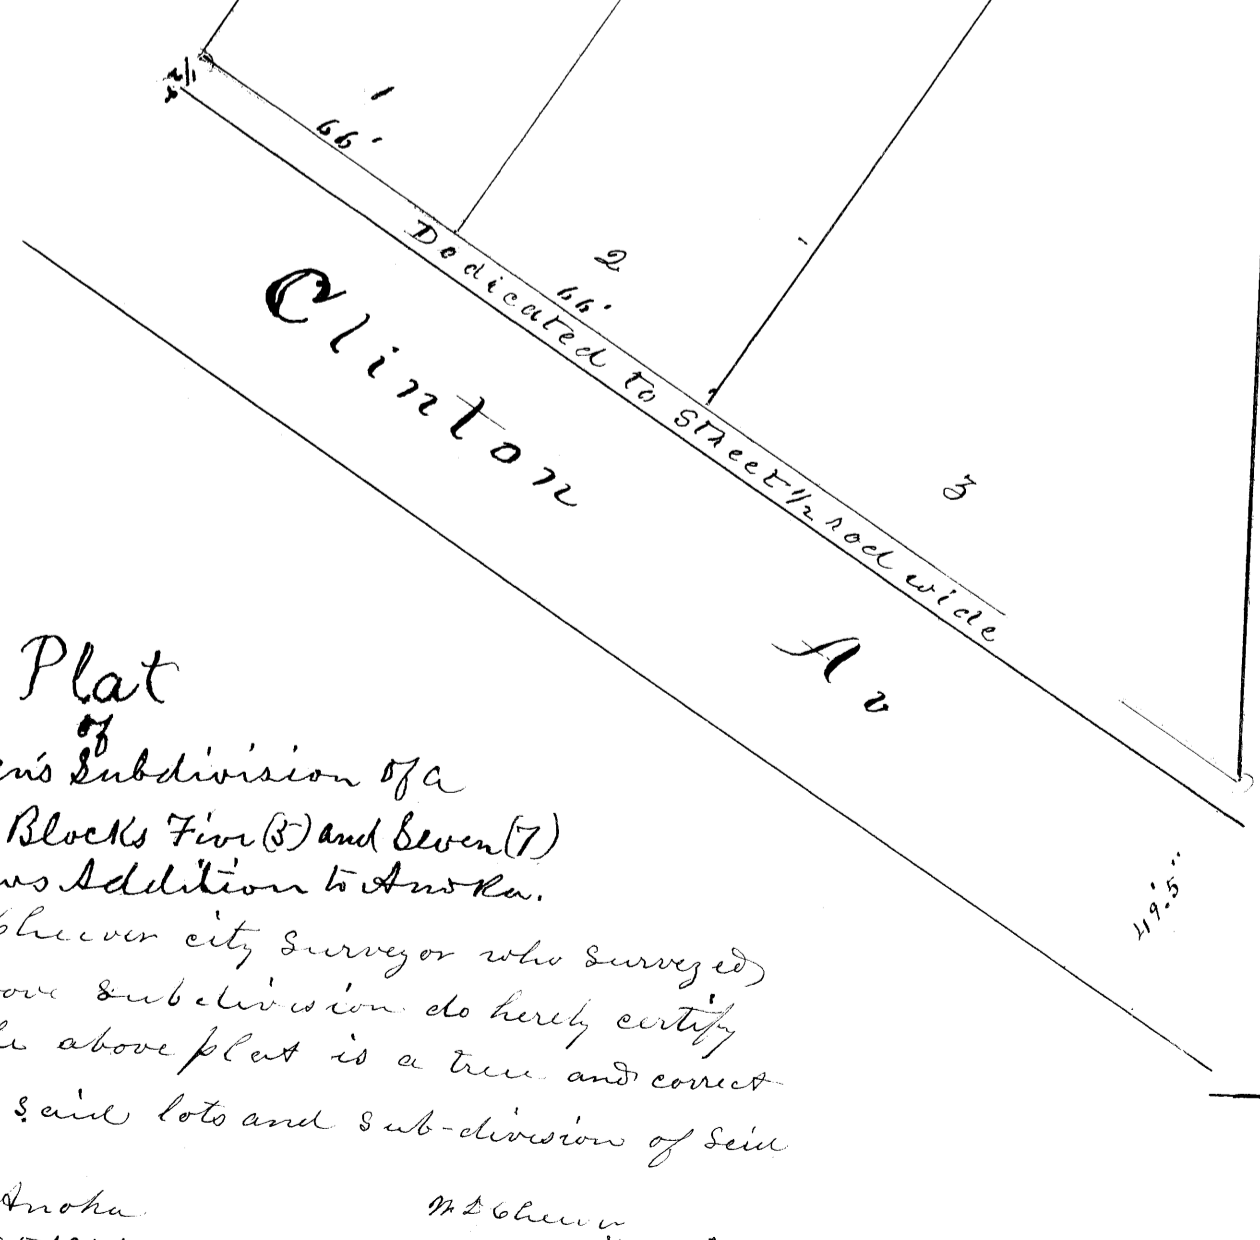 1
66'
2
66'
Dedicated to Street 1/2 rod wide
3
Clinton
Av
49.5"
Plat
of
en's Subdivision of a
Blocks Five (5) and Seven (7)
ws Addition to Anoka.
Cheever city Surveyor who surveyed
ove subdivision do herely certify
above plat is a true and correct
said lots and sub-division of said
Anoka
Cheever